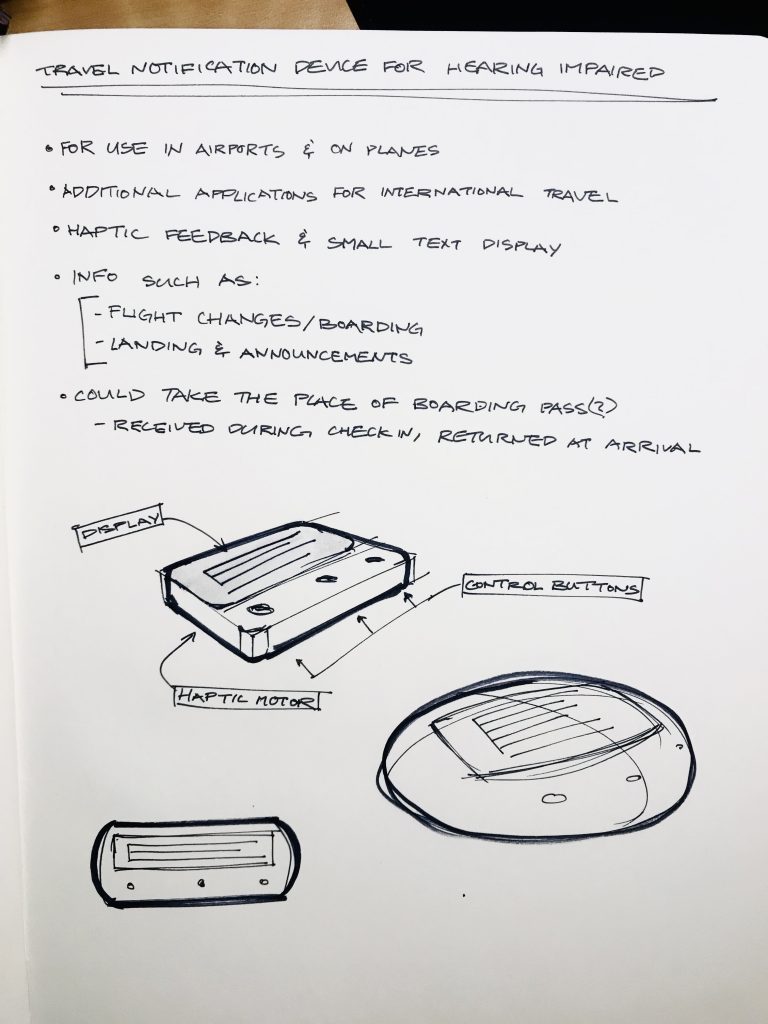 TRAVEL NOTIFICATION DEVICE FOR HEARING IMPAIRED
• FOR USE IN AIRPORTS & ON PLANES
• ADDITIONAL APPLICATIONS FOR INTERNATIONAL TRAVEL
• HAPTIC FEEDBACK & SMALL TEXT DISPLAY
• INFO SUCH AS:
- FLIGHT CHANGES/BOARDING
- LANDING & ANNOUNCEMENTS
• COULD TAKE THE PLACE OF BOARDING PASS(?)
- RECEIVED DURING CHECK IN, RETURNED AT ARRIVAL
DISPLAY
CONTROL BUTTONS
HAPTIC MOTOR